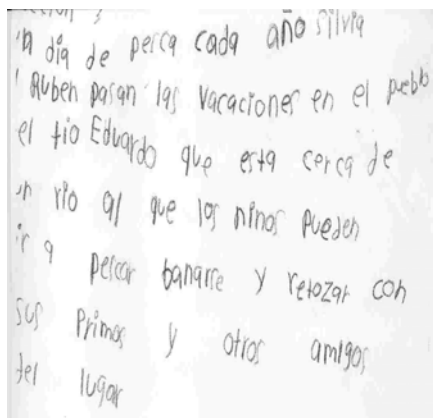 un dia de pesca cada año silvia
Ruben pasan las vacaciones en el pueblo
el tio Eduardo que esta cerca de
un rio al que los ninos pueden
ir a pescar banarse y retozar con
sus primos y otros amigos
del lugar